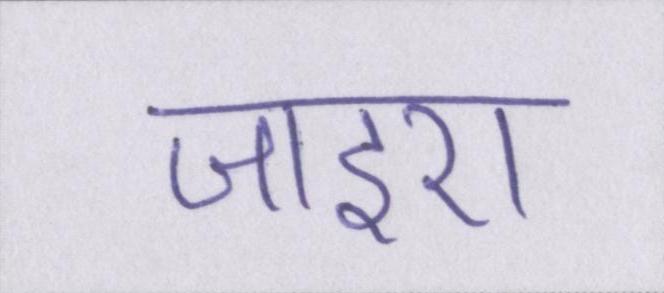 जाइरा